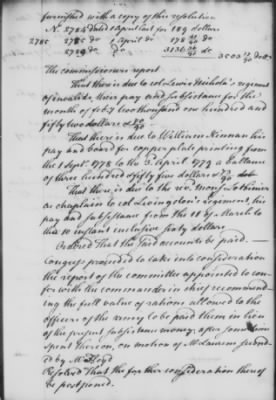 furnished with a copy of this resolution
No. 2784 dated 1 April last for 189 dollars
2785 do 1 April do 178 do
do 3136 do
The commissioners report
That there is due to col Lewis Nichola's regiment
of invalids, their pay and subsistance for the
month of feby two thousand one hundred and
fifty two dollars
That there is due to William Kinnan his
pay and board for copper plate printing from
the 1 Sept. 1778 to the 3 april 1779 a ballance
of three hundred & fifty five dollars
That there, is due to the revd. monsr. Lotbinier
as chaplain to col Livingston's regiment, his
pay and subsistance from the 11 of March to
the 10 instant inclusive sixty dollars
Ordered That the said accounts be paid.
Congress proceeded to take into consideration
the report of the committee appointed to con-
fer with the commander in chief recommend-
ing the full value of rations allowed to the
officers of the army to be paid them in lieu
of the present subsistance money; after some time
spent thereon, on motion of Mr Laurens second-
ed by Mr Lloyd
Resolved That the farther consideration thereof
be postponed.